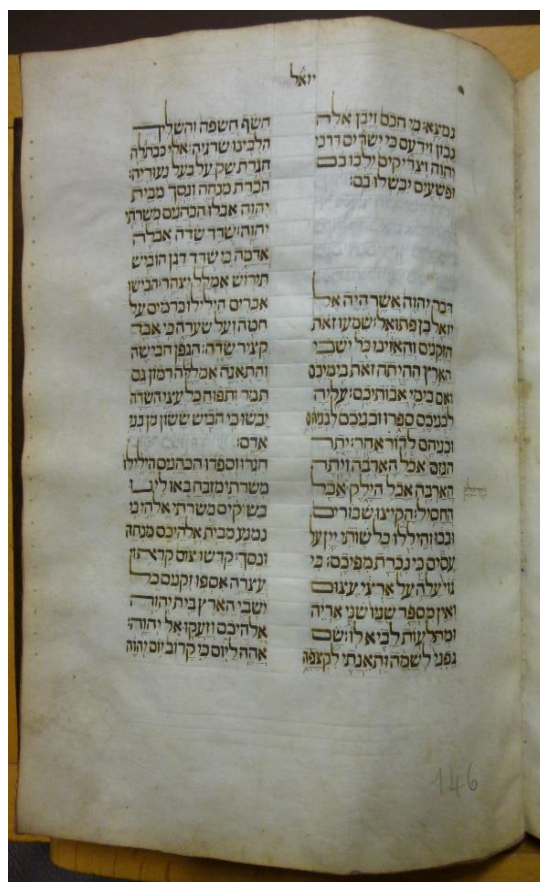 יואל
נמצא: מי חכם ויבן אלה
נבון וידעם כי ישרים דרכי
יהוה וצדיקים ילכו בם
ופשעים יכשלו בם:
דבר יהוה אשר היה אל
יואל בן פתואל: שמעו זאת
הזקנים והאזינו כל ישבי
הארץ ההיתה זאת בימיכם
ואם בימי אבותיכם: עליה
לבניכם ספרו ובניכם לבניהם
ובניהם לדור אחר: יתר
הגזם אכל הארבה ויתר
הארבה אכל הילק אכל
החסיל: הקיצו שכורים
ובכו והיללו כל שותי יין על
עסיס כי נכרת מפיכם: כי
גוי עלה על ארצי עצום
ואין מספר שניו שני אריה
ומתלעות לביא לו: שם
גפני לשמה ותאנתי לקצפה
חשף חשפה והשליך
הלבינו שריגיה: אלי כבתולה
חגרת שק על בעל נעוריה:
הכרת מנחה ונסך מבית
יהוה אבלו הכהנים משרתי
יהוה: שדד שדה אבלה
אדמה כי שדד דגן הוביש
תירוש אמלל יצהר: הבישו
אכרים הילילו כרמים על
חטה ועל שערה כי אבד
קציר שדה: הגפן הבישה
והתאנה אמללה רמון גם
תמר ותפוח כל עצי השדה
יבשו כי הביש ששון מן בני
אדם:
חגרו וספדו הכהנים הילילו
משרתי מזבח באו לינו
בשקים משרתי אלהי כי
נמנע מבית אלהיכם מנחה
ונסך: קדשו צום קראו
עצרה אספו זקנים כל
ישבי הארץ בית יהוה
אלהיכם וזעקו אל יהוה:
אהה ליום כי קרוב יום יהוה
146